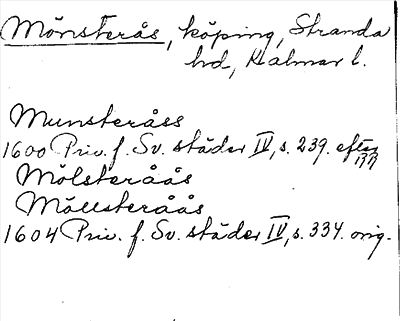 Mönsterås, köping, Stranda
hd, Kalmar l.
Munsteråss
1600 Priv. f. Sv. städer IV, s. 239. efter
Mölsteråås
Möllsteråås
1604 Priv. f. Sv. städer IV, s. 334. orig.